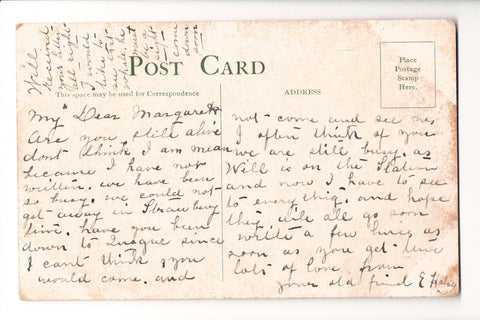 Will
received
your letter
all right
I would
like to
come
down
soon
POST CARD
This space may be used for Correspondence
ADDRESS
Place
Postage
Stamp
Here.
My Dear Margaret
Are you still alive
dont think I am mean
because I have not
written. we have been
so busy. we could not
get away in Strawberry
time. have you been
down to Quogue since
I cant think you
would come. and
not come and see me,
I often think of you
we are still busy. as
Will is on the Station
and now I have to see
to every thig. and hope
they will all go soon
write a few lines as
soon as you get time
lots of love from
your old friend E